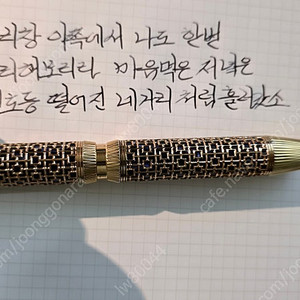 리창 이쪽에서 나도 한번
리해보리라 마음먹은 저녁은
호등 떨어진 네거리처럼 흘러갔소